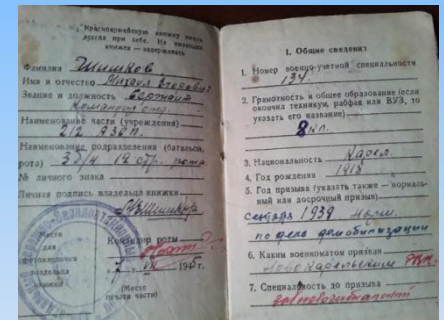 "Красноармейскую книжку иметь
всегда при себе. Не имеющих
книжек — задерживать
Фамилия Шишков
Имя и отчество Михаил Егорович
Звание и должность Сержант
Командир отд.
Наименование части (учреждения)
212 АЗСП.
Наименование подразделения (батальон,
рота) 3 б/н 19 стр. рота
№ личного знака
Личная подпись владельца книжки
Шишков
Место
для
фотокарточки
владельца
книжки
Командир роты
1945г.
(Место
печати части)
I. Общие сведения
1. Номер военно-учетной специальности
134.
2. Грамотность и общее образование (если
окончил техникум, рабфак или ВУЗ, то
указать его название)
8 кл.
3. Национальность Карел.
4. Год рождения 1918
5. Год призыва (указать также — нормаль-
ный или досрочный призыв)
1939 норм.
до дела демобилизации
6. Каким военкоматом призван
РВК.
7. Специальность до призыва